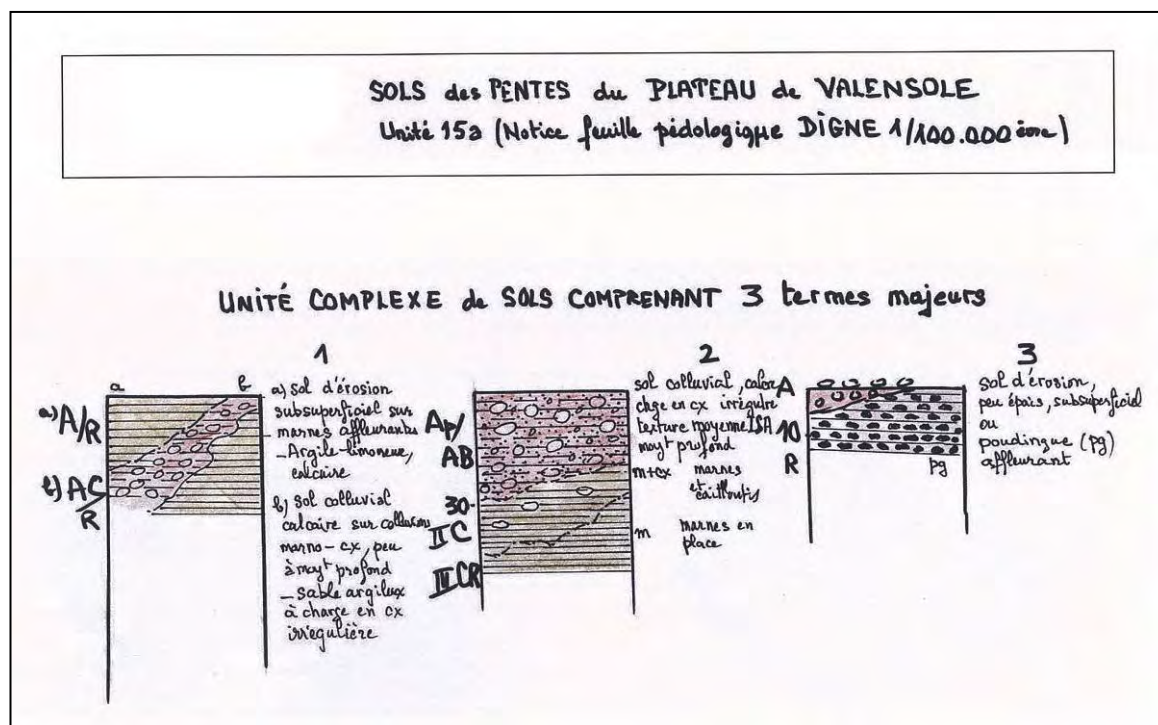 SOLS des PENTES du PLATEAU de VALENSOLE
Unité 15a (Notice feuille pédologique DIGNE 1/100.000 ème)
UNITÉ COMPLEXE de SOLS COMPRENANT 3 termes majeurs
1
a
b
a) A/R
b) AC
/R
a) Sol d'érosion
subsuperficiel sur
marnes affleurantes
_ Argile-limoneuse,
calcaire
b) Sol colluvial
calcaire sur colluvions
marno-cx, peu
à moyt profond
_ Sable argileux
à charge en cx
irrégulière
2
Ap/
AB
30-
II C
sol colluvial, calcre
chge en cx irrégulre
texture moyenne LSA
moyt profond
m+cx marnes
et cailloutis
m marnes en
place
3
A
10
R
pg
Sol d'érosion,
peu épais, subsuperficiel
ou
poudingue (pg)
affleurant